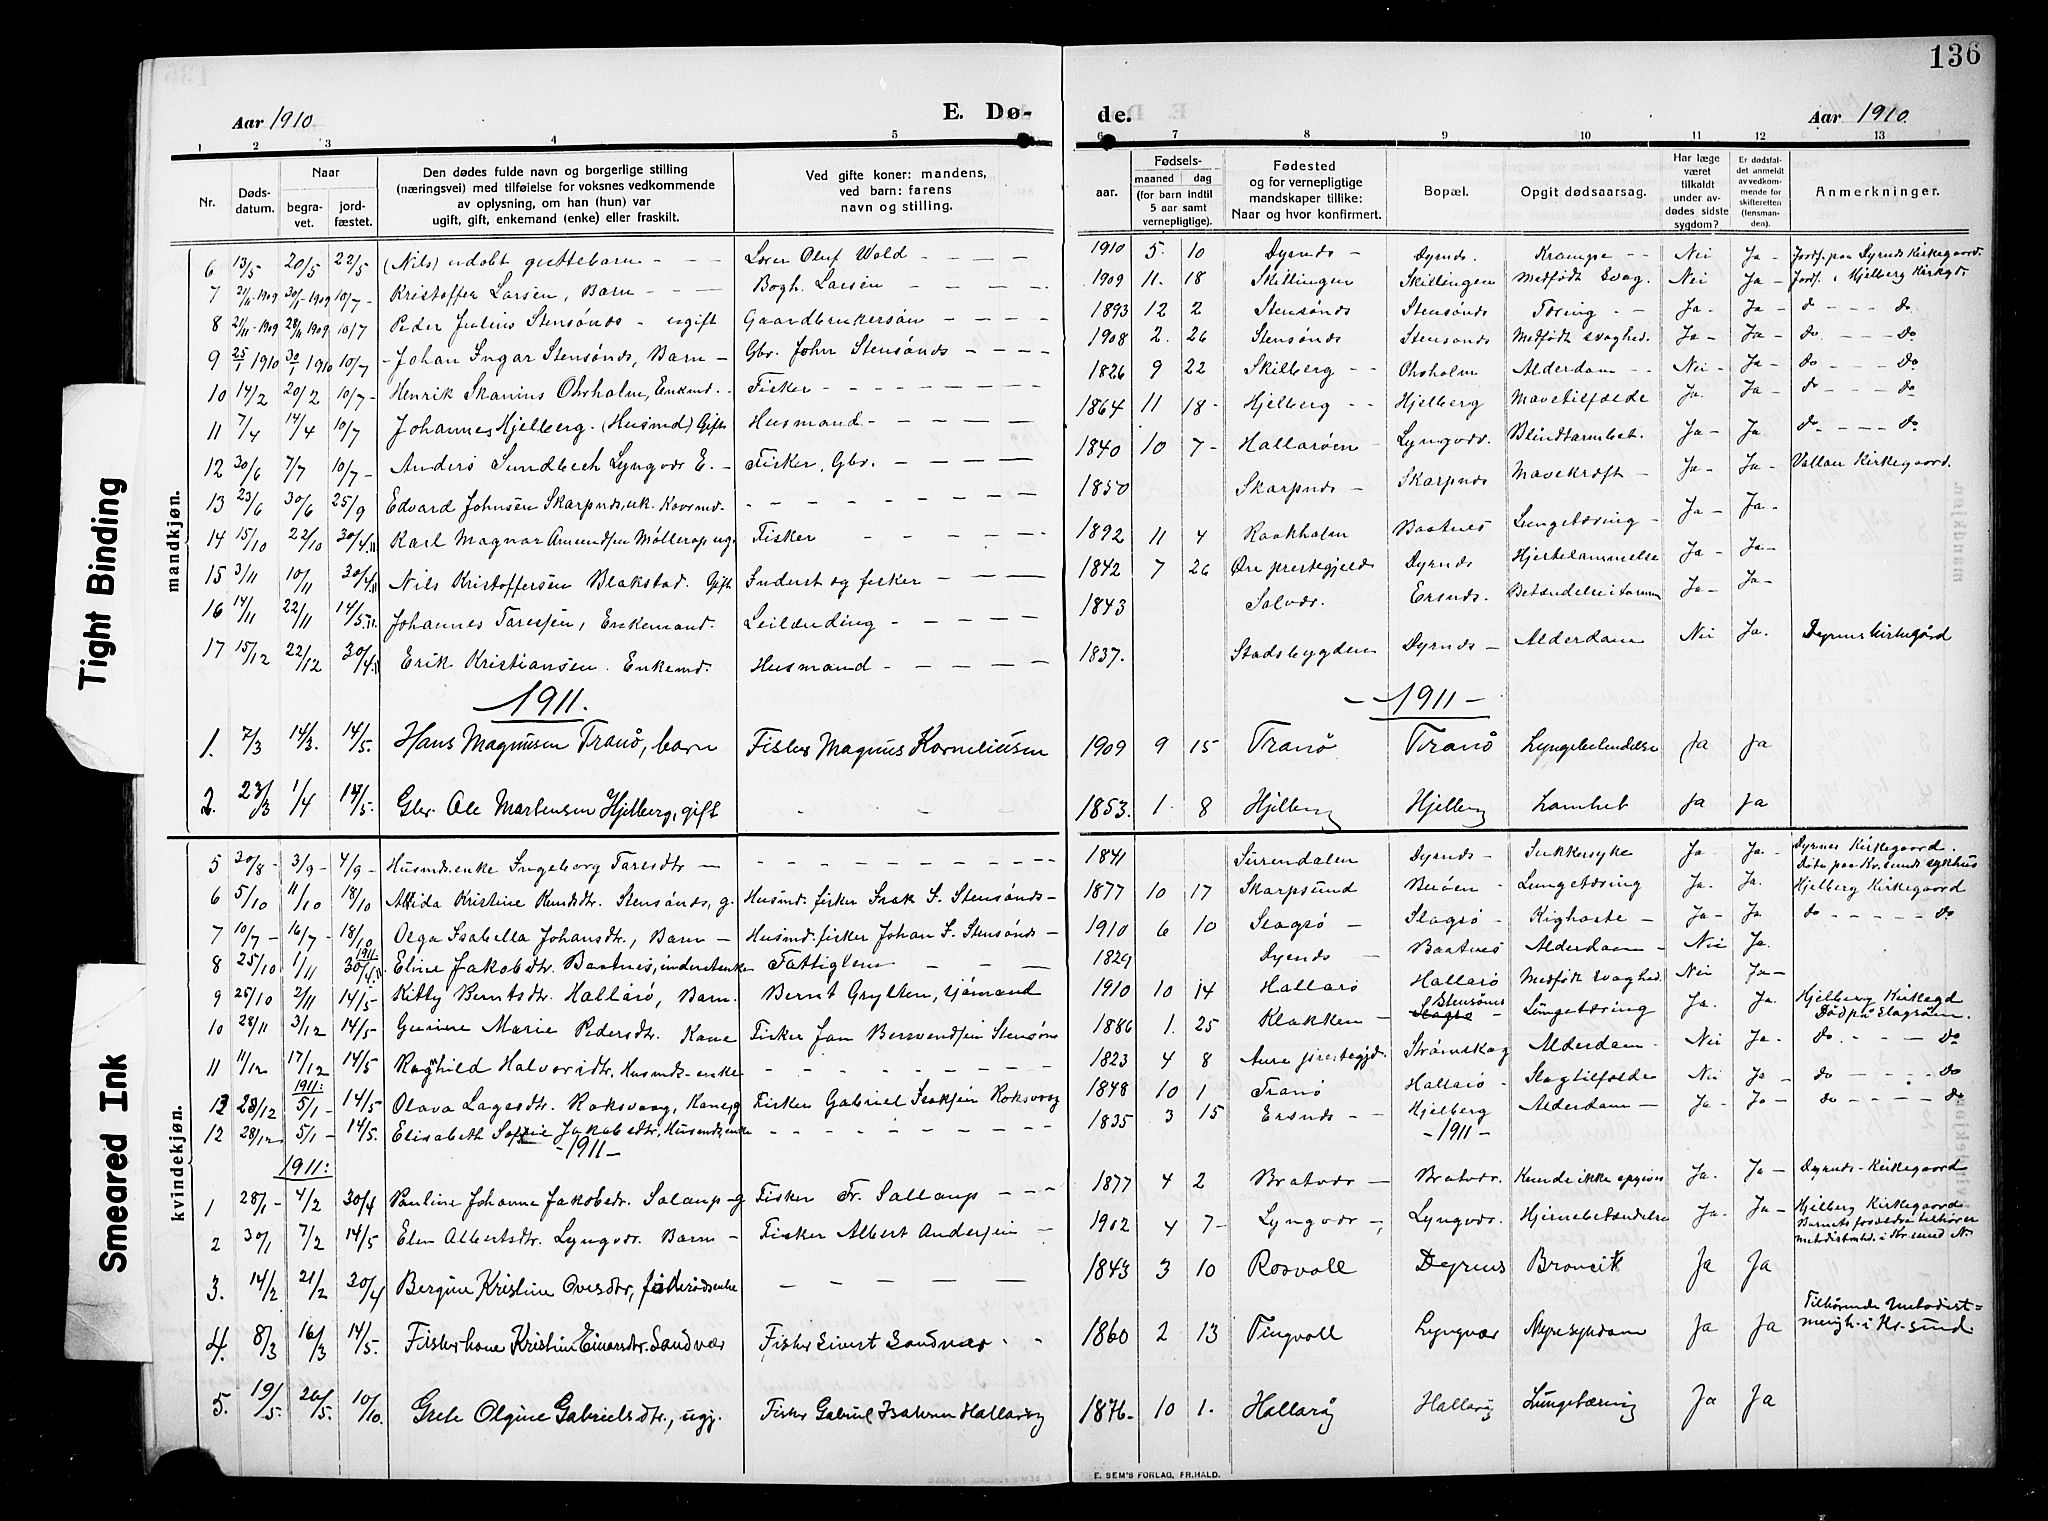 136
Aar 1910
E. Dø-
de.
Aar 1910
1 2 3 4 5 6 7 8 9 10 11 12 13
Nr.
Døds-
datum.
Naar
begra-
vet.
jord-
fæstet.
Den dødes fulde navn og borgerlige stilling
(næringsvei) med tilføielse for voksnes vedkommende
av oplysning, om han (hun) var
ugift, gift, enkemand (enke) eller fraskilt.
Ved gifte koner: mandens,
ved barn: farens
navn og stilling.
Fødsels-
aar.
maaned
dag
(for barn indtil
5 aar samt
vernepligtige).
Fødested
og for vernepligtige
mandskaper tillike:
Naar og hvor konfirmert.
Bopæl.
Opgit dødsaarsag.
Har læge
været
tilkaldt
under av-
dødes sidste
sygdom?
Er dødsfal-
det anmeldt
av vedkom-
mende for
skifteretten
(lensman-
den).
Anmerkninger.
mandkjøn.
6 13/5 20/5 22/5 (Nils) udøbt guttebarn - - - Oluf Wold - - - 1910 5. 10 Dyrnds - Dyrnds. Krampe - - Nei Ja - Jordf. paa Dyrnds Kirkegaard.
7 21/11-1909 1909 10/7- Kristoffer Larsen, Barn - - - Bogh. Larsen - - - 1909 11. 18 Skillingen Skillingen Medfødt Svag. Nei Ja - Jordf. i Hjelberg Kirkgd.
8 21/11-1909 28/11 1909 10/7 Peder Julius Stensønds - ugift Gaardbrukersøn - - - 1893 12 2 Stensønds Stensønds Tæring - - Ja. Ja - do - - - do
9 25/1 1910 30/1 1910 10/7 - Johan Ingar Stensønds, Barn - Gbr. John Stensønds - - - 1908 2. 26 Stensønds Stensønds Medfødt svaghed. Ja - Ja - do. - - - do
10 14/2 20/2 10/7 - Henrik Skanius Ohrholm, Enkmd. - Fisker - - - 1826 9 22 Skilberg - - Ohsholm Alderdom - - Nei - Ja do - - - do
11 7/4 14/4 10/7 Johannes Hjelberg. (Husmd) Gift Husmand - - - 1864 11 18 - Hjelberg - - Hjelberg Mavetilfælde Ja. Ja - do - - - do
12 30/6 7/7 10/7 - Anders Sundbech Lyngvær E. - Fisker, Gbr. - - - 1840 10 7 - Hallarøen - Lyngvær. Blindtarmbet. Ja - Ja do - - - do
13 23/6 30/6 25/9 Edvard Johnsen Skarpnds, - - - 1850 Skarpnds - Skarpnds Mavekræft - Ja - Ja - Vallan Kirkegaard.
14 15/10 22/10 30/4.11 Karl Magnar Amundsen Møllerop ug. Fisker - - - 1892 11 4 Raakholm Baatnes Lungetæring - Ja - Ja -
15 3/11 10/11 30/4.11 Nils Kristoffersen Blakstad. Gift Inderst og fisker - - - 1842 7 26 Øre prestegjeld Dyrnds Hjertelammelse Ja - Ja -
16 14/11 22/11 14/5.11. Johannes Taresen, Enkemand. Leilænding - - - 1843 Solvær. Ersnds. Betændelse i tarmen Ja - Ja -
17 15/12 22/12 30/4.11 Erik Kristiansen. Enkemd. Husmand - - - 1837. Stadsbygden Dyrnds - Alderdom Nei Ja. Dyrnes kirkegård
1911.
- 1911 -
1. 7/3 14/3. 14/5. Hans Magnusen Tranø, barn Fisker Magnus Korneliusen 1909 9 15 Tranø Tranø Lyngebetendelse Ja Ja
2. 23/3 1/4 14/5. Gbr. Ole Martensen Hjelberg, gift - - - 1853. 1. 8 Hjelberg Hjelberg Lamhet Ja Ja
kvindekjøn.
5 30/8 - 3/9 - 4/9 - Husmdsenke Ingeborg Taresdtr - - - - 1841 Sirrendalen Dyrnds - Sukkersyke Ja - Ja - Dyrnes Kirkegaard.
Døde paa Kr.sunds sykhus
6 5/10 11/10 18/10 Alida Kristine Knudsdtr. Stensønds, g. Husmd. fisker Isak S. Stensønds - 1877 10 17 Skarpsund Buøen - Lungetæring Ja. Ja. Hjelberg Kirkegaard
7 10/7 - 16/7 - 18/10 Olga Isabella Johansdtr., Barn - Husmd. fisker Johan S. Stensønds - 1910 6 10 Slagsø - Slagsø - Kighoste - Ja - Ja do - - - - do
8 25/10 1/11 1911 30/4.11 Eline Jakobsdtr. Baatnes, inderstenke Fattiglem - - - 1829 Dyrnds - Baatnes Alderdom - Nei Ja.
9 25/10 2/11 14/5 - Kitty Berntsdtr. Hallarø, Barn. Bernt Grytten, sjømand 1910 10 14 Hallarø Hallarø Medfødt svaghed. Nei Ja -
10 28/11 3/12 14/5 - Gurine Marie Pedersdtr. Kone Fisker Jan Berwendsen Stensøn 1886 1. 25 Klakken - Stensønes Slagsø - Lungetæring Ja. Ja. Hjelberg Kirkegd
Død på Slagsøen.
11 11/12 17/12 14/5 Raghild Halvorsdtr, Husmds-enke - - - 1823 4 8 Aure prestegjd. Strømskag Alderdom - Nei Ja - do. - - - do
12 28/12 1911: 5/1 - 14/5 Olava Lagesdtr. Roksvaag, Kone, g Fisker Gabriel Isaksen Roksvaag 1848 10 1 Tranø Hallarø - Slagtilfælde Nei Ja - do - - - do
12 28/12 5/1 - 14/5. Elisabeth Sofie Jakobsdtr, Husmdsenke - - - 1835 3 15 Ersnds - - Hjelberg Alderdom - Ja - Ja - do - - - do
1911: - 1911 - - 1911 -
1 28/1 4/2 30/4 Pauline Johanne Jakobsdr. Salaup - g Fisker Fr. Sallaup - - - 1877 4 2 Bratvær - Bratvær. Kunde ikke opgives Ja. Ja - Dyrnds - Kirkegaard
2 30/1 7/2 14/5 Elen Albertsdtr. Lyngvær. Barn - Fisker Albert Andersen - 1902 4 7 - Lyngvær -, Lyngvær. Hjernebetændelse Ja. Ja - Hjelberg Kirkegaard
Barnets forældre tilhører
metodistmd. i Kr.sund N.
3. 14/2 21/2 30/4 Bergine Kristine Ovesdtr, føderådsenke - - - 1843 3 10 Rosvoll Dyrnes Broncit Ja Ja
4. 8/3 16/3 14/5. Fisherkone Kristine Einarsdtr. Sandvær Fisker Sivert Sandvær - - 1860 2 13 Tingvoll Lyngvær Nyresykdom Ja Ja Tilhørende Metodist=
menigh. i Kr.sund.
5. 19/5. 26/5. 10/10 Grete Olgine Gabrielsdtr., ugj. Fisker Gabriel Isaksen Hallarøy 1876 - 10 1. Hallarøy Hallarøy Lungetæring Ja Ja
E. SEM'S FORLAG, FR.HALD.
Tight Binding
Smeared Ink